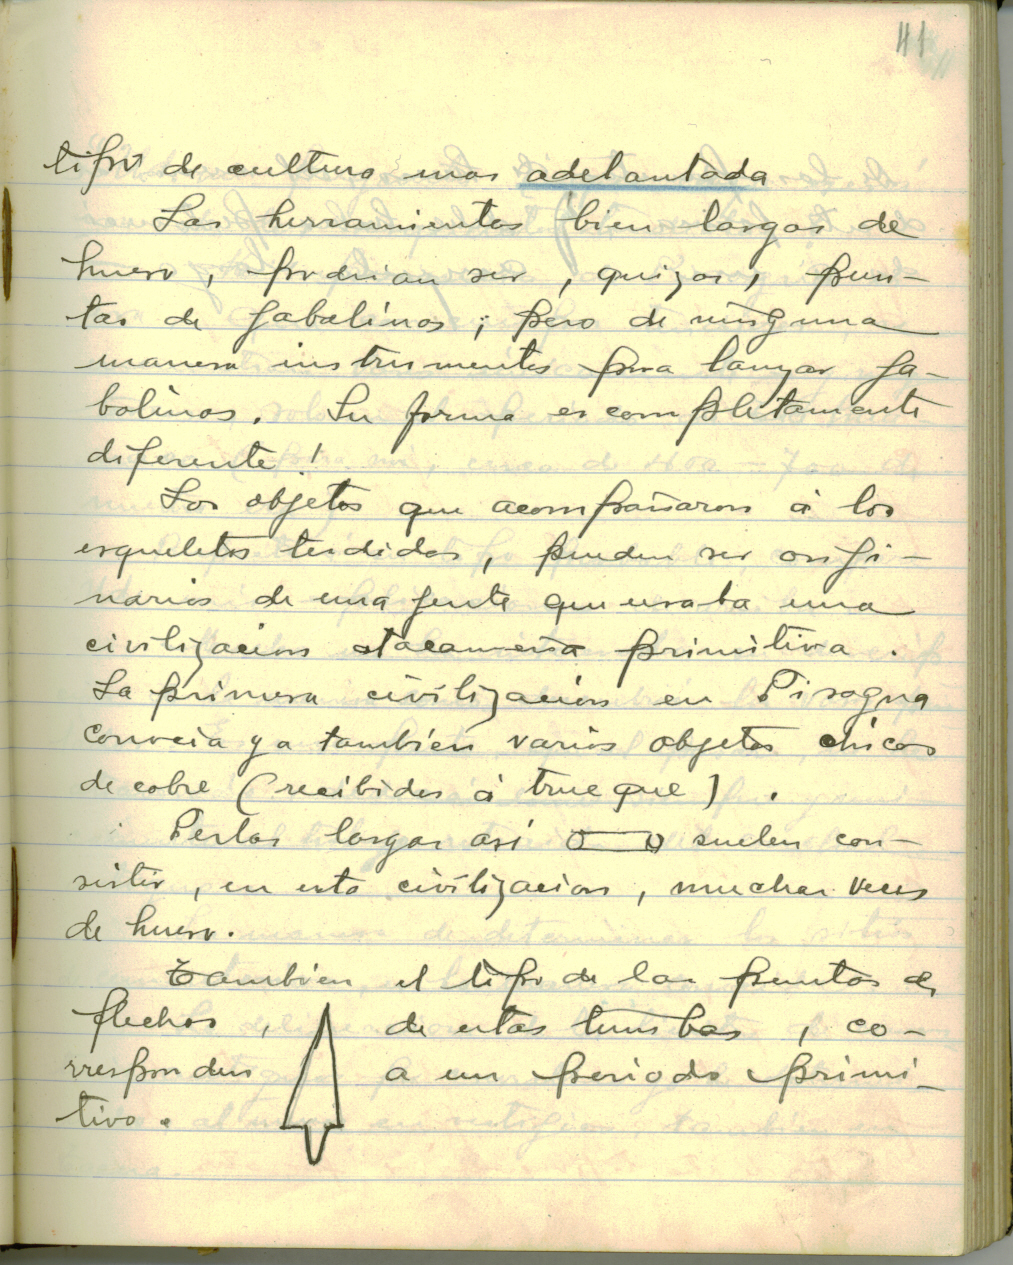 41
tipo de cultura mas adelantada
Las herramientas bien largas de
hueso, podrian ser, quizas, pun-
tas de jabalinas; pero de ninguna
manera instrumentos para lanzar ja-
balinas. Su forma es completamente
diferente!
Los objetos que acompañaron á los
esqueletos tendidos, pueden ser origi-
narios de una gente que usaba una
civilizacion atacameña primitiva.
La primera civilización en Pisagua
conocia ya tambien varios objetos chicos
de cobre (recibidos á trueque).
Perlas largas asi suelen con-
sistir, en esta civilizacion, muchas veces
de hueso.
Tambien el tipo de las puntas de
flechas, de estas tumbas, co-
rresponden a un periodo primi-
tivo.